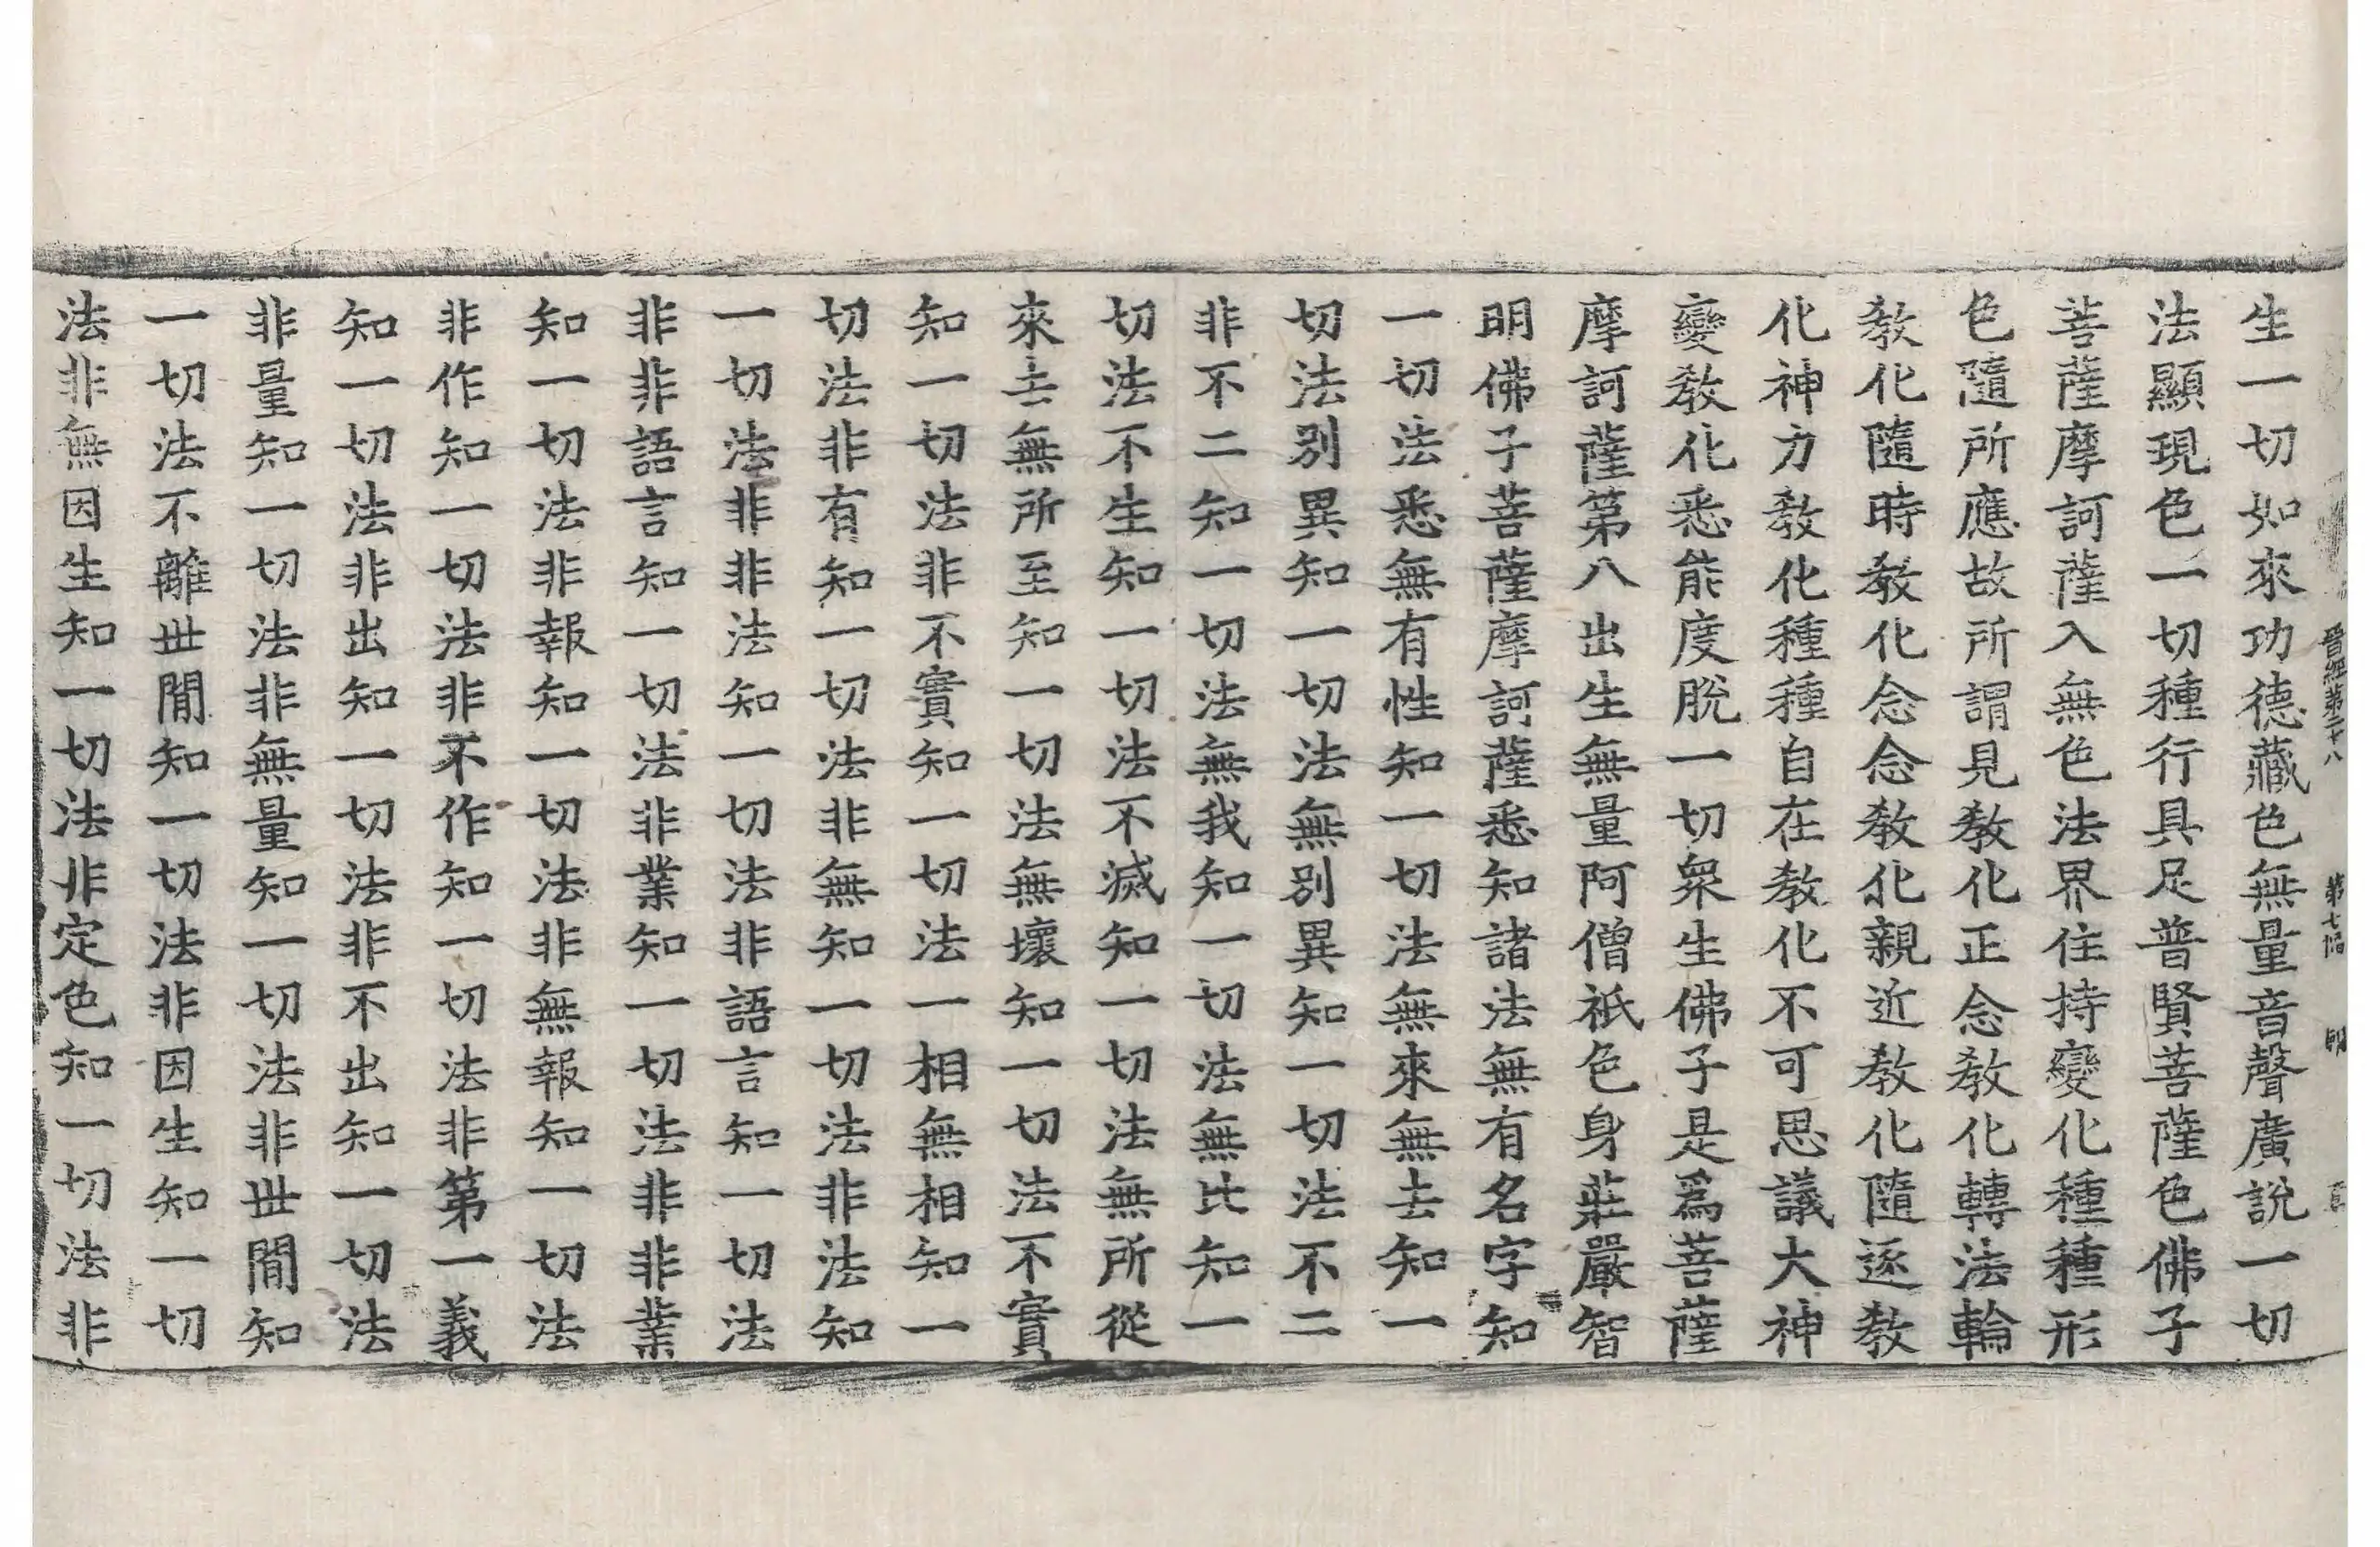 晉經第二十八 第七幅 明
生一切如來功德藏色無量音聲廣說一切
法顯現色一切種行具足普賢菩薩色佛子
菩薩摩訶薩入無色法界住持變化種種形
色隨所應故所謂見教化正念教化轉法輪
教化隨時教化念念教化親近教化隨逐教
化神力教化種種自在教化不可思議大神
變教化悉能度脫一切眾生佛子是為菩薩
摩訶薩第八出生無量阿僧祇色身莊嚴智
明佛子菩薩摩訶薩悉知諸法無有名字知
一切法悉無有性知一切法無來無去知一
切法別異知一切法無別異知一切法不二
非不二知一切法無我知一切法無比知一
切法不生知一切法不滅知一切法無所從
來去無所至知一切法無壞知一切法不實
知一切法非不實知一切法一相無相知一
切法非有知一切法非無知一切法非法知
一切法非非法知一切法非語言知一切法
非非語言知一切法非業知一切法非非業
知一切法非報知一切法非無報知一切法
非作知一切法非不作知一切法非第一義
知一切法非出知一切法非不出知一切法
非量知一切法非無量知一切法非世間知
一切法不離世間知一切法非因生知一切
法非無因生知一切法非定色知一切法非